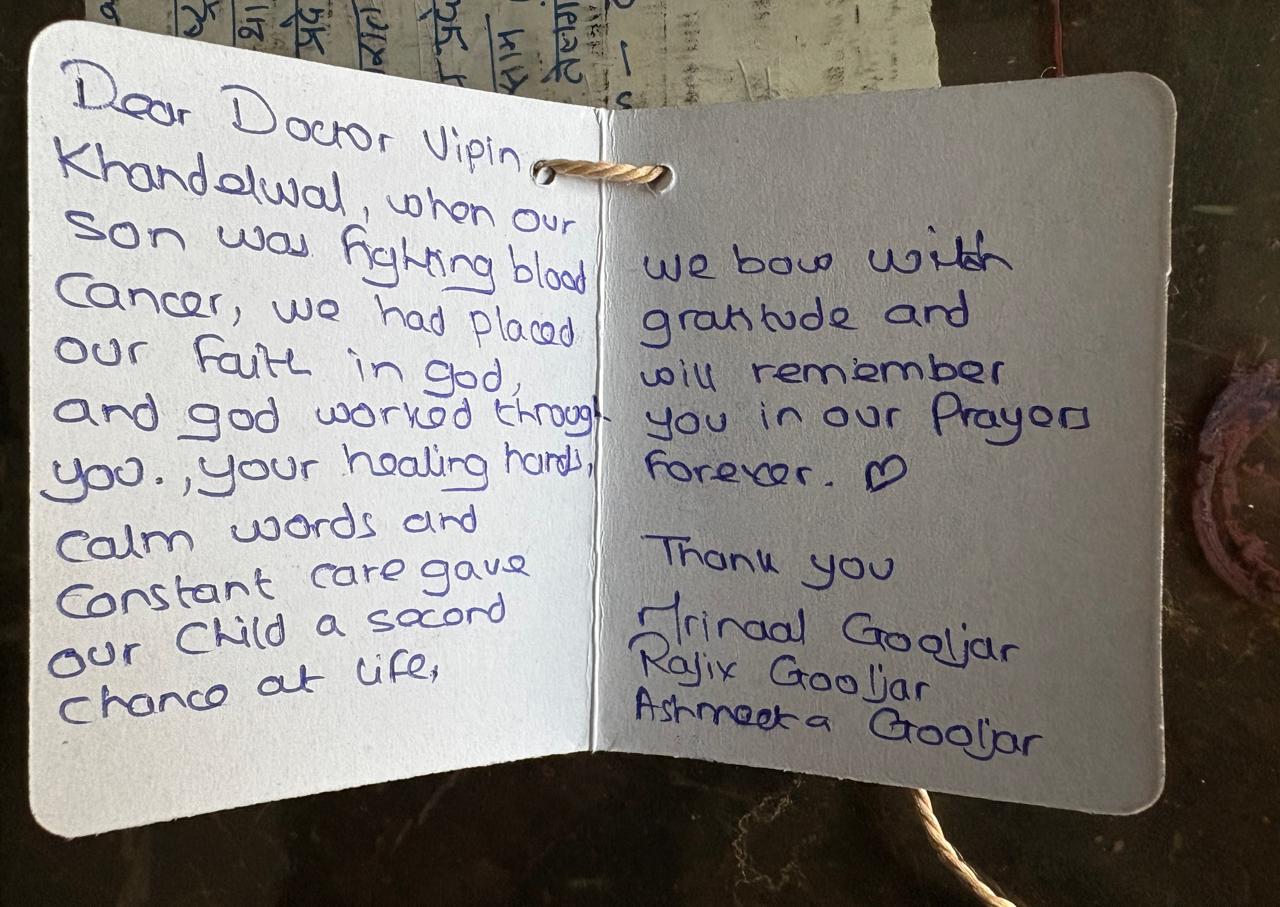 Dear Doctor Vipin
Khandelwal, when our
son was fighting blood
Cancer, we had placed
our Faith in god,
and god worked through
you. , your healing hands,
calm words and
Constant care gave
our Child a second
chance at life,
we bow with
gratitude and
will remember
you in our Prayers
Forever. ♡
Thank you
Gooljar
Rajiv Gooljar
Ashmeeta Gooljar